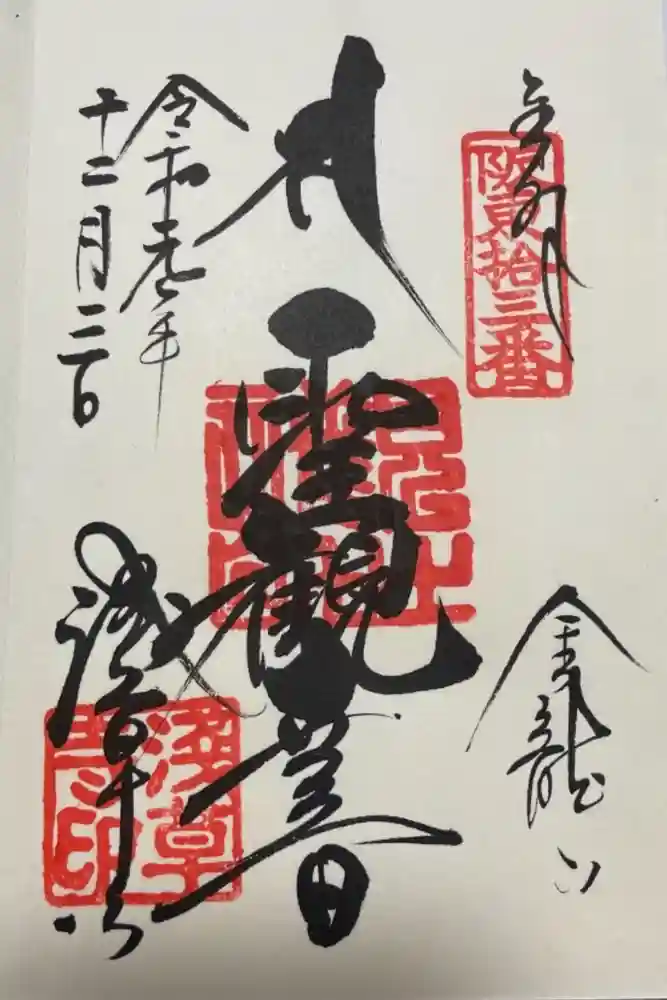 奉拝
阪東拾三番
金龍山
聖観世音
浅草寺
浅草寺印
令和元年
十二月二日